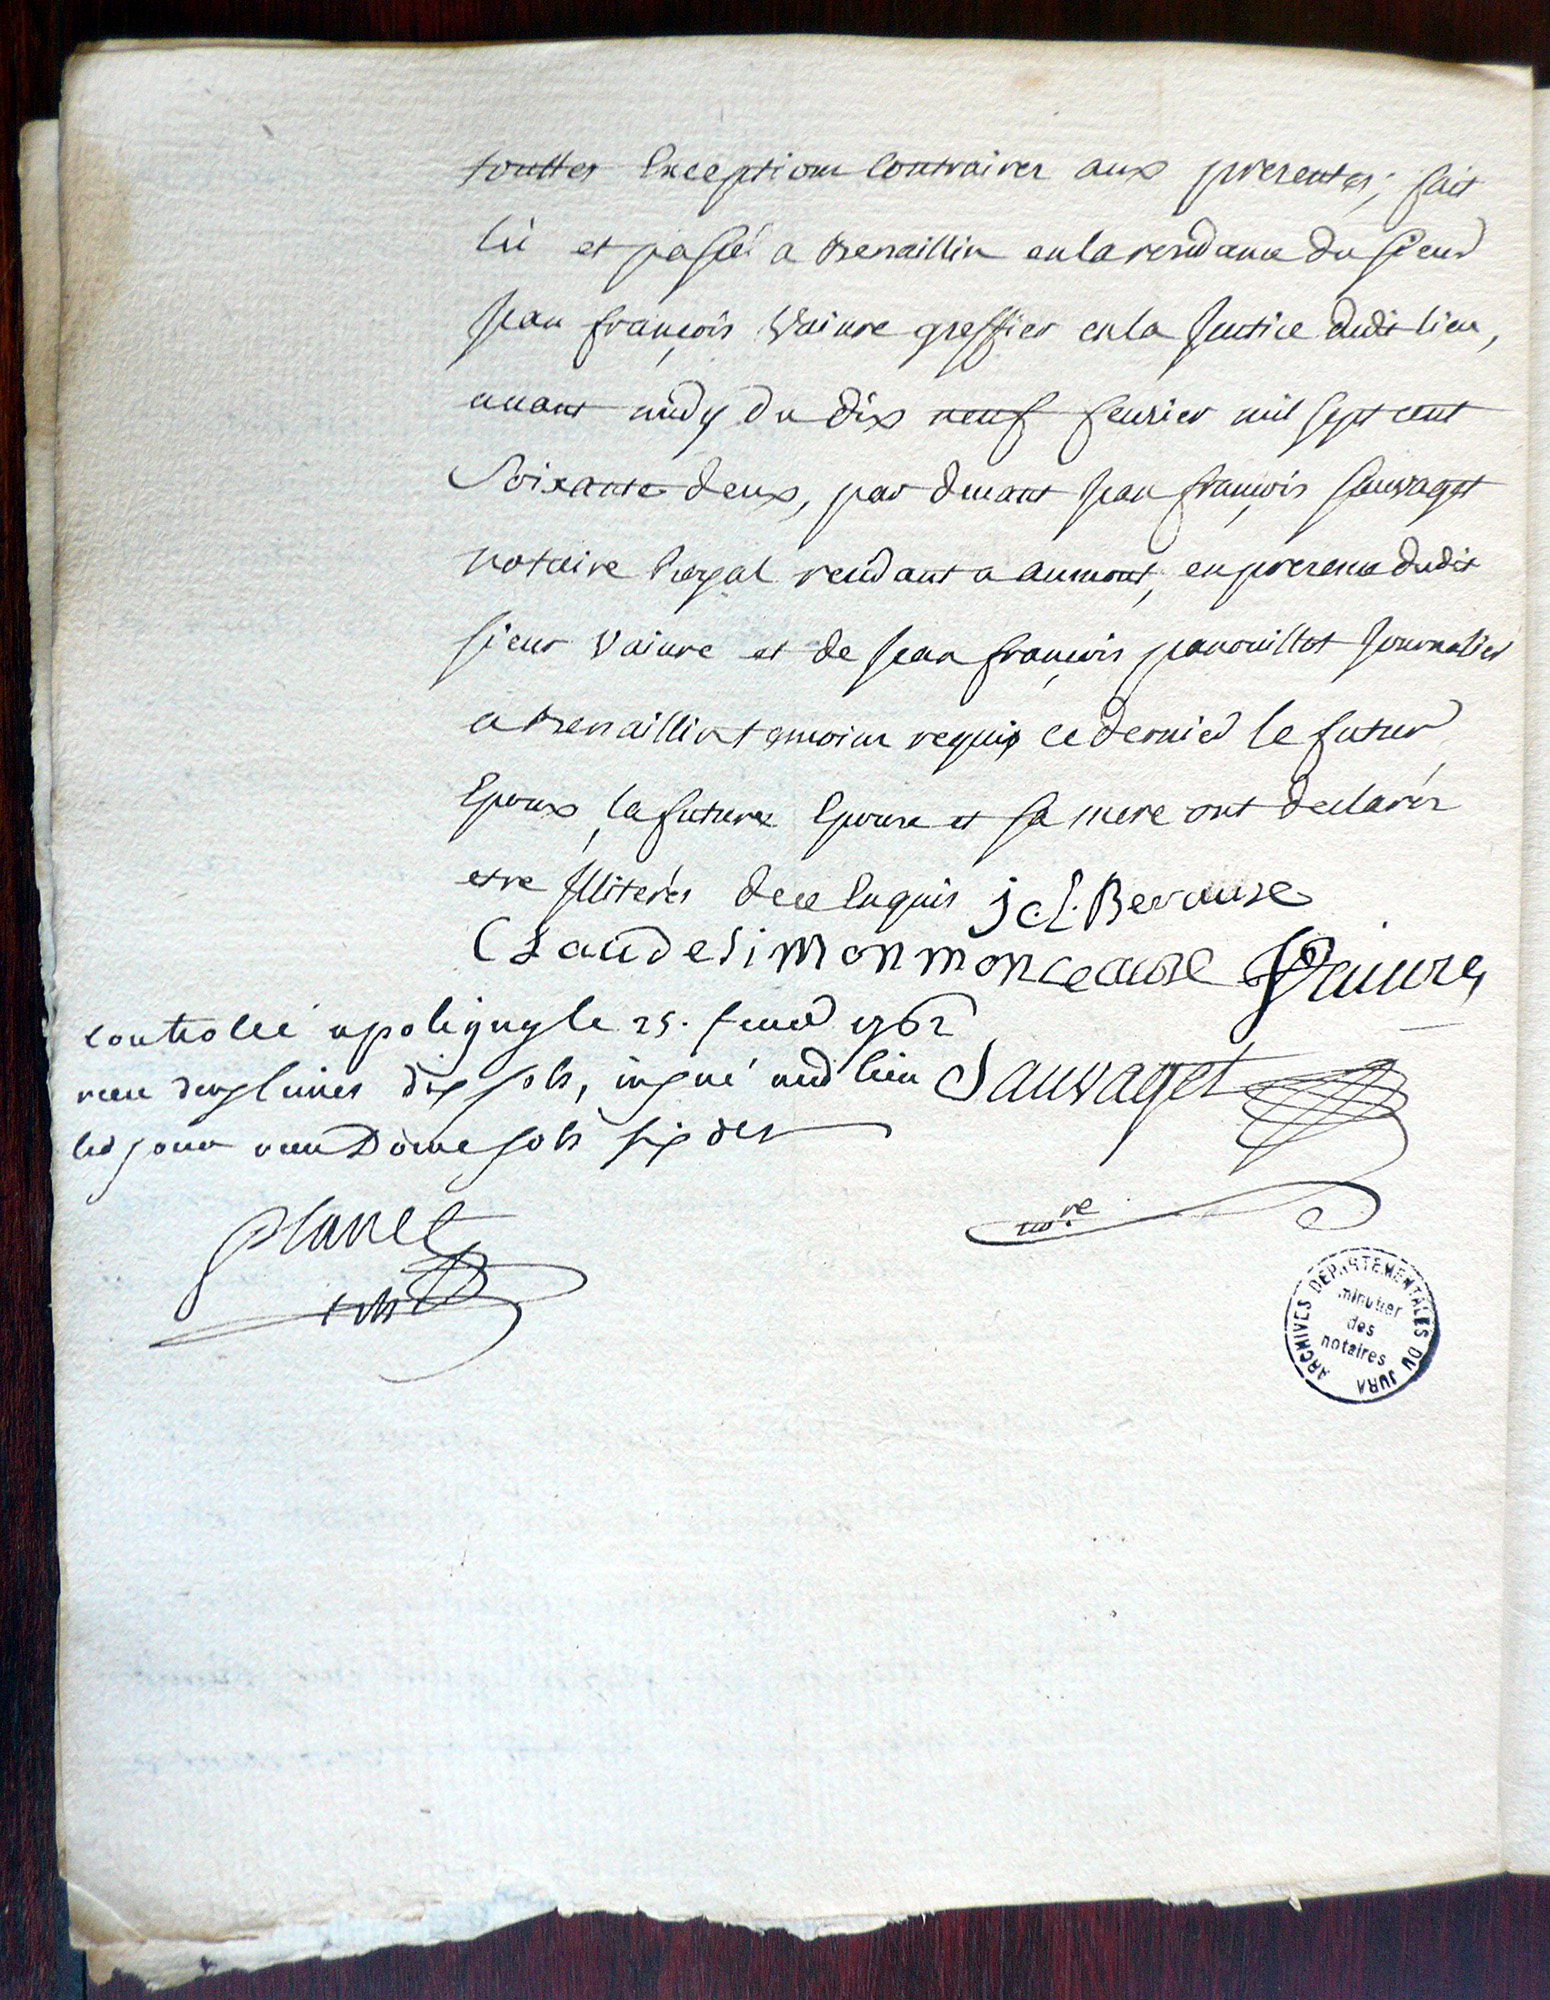 touttes Exceptions Contraires aux presentes; fait
lû et passé a Besnaillin en la residance du sieur
Jean françois Vaivre greffier en la Justice dudit lieu,
avant midy du dix neuf feuvrier mil sept cent
Soixante deux, par devant Jean françois Sauvaget
notaire Royal residant a aumont, en presence dudit
sieur Vaivre et de Jean françois panouillot Journalier
temoins requis ce dernier le futur
Epoux, la future Epouse et sa mere ont declarés
etre Illiterés de ce Enquis j.c.l. Berause
Claude Simon monceause Vaivre
Controllé a poligny le 25. feuvr 1762
receu deux livres dix sols, insiné aud lieu Sauvaget
led jour receu Douze sols six ders
planet
nore
ARCHIVES DEPARTEMENTALES DU JURA
minutier
des
notaires